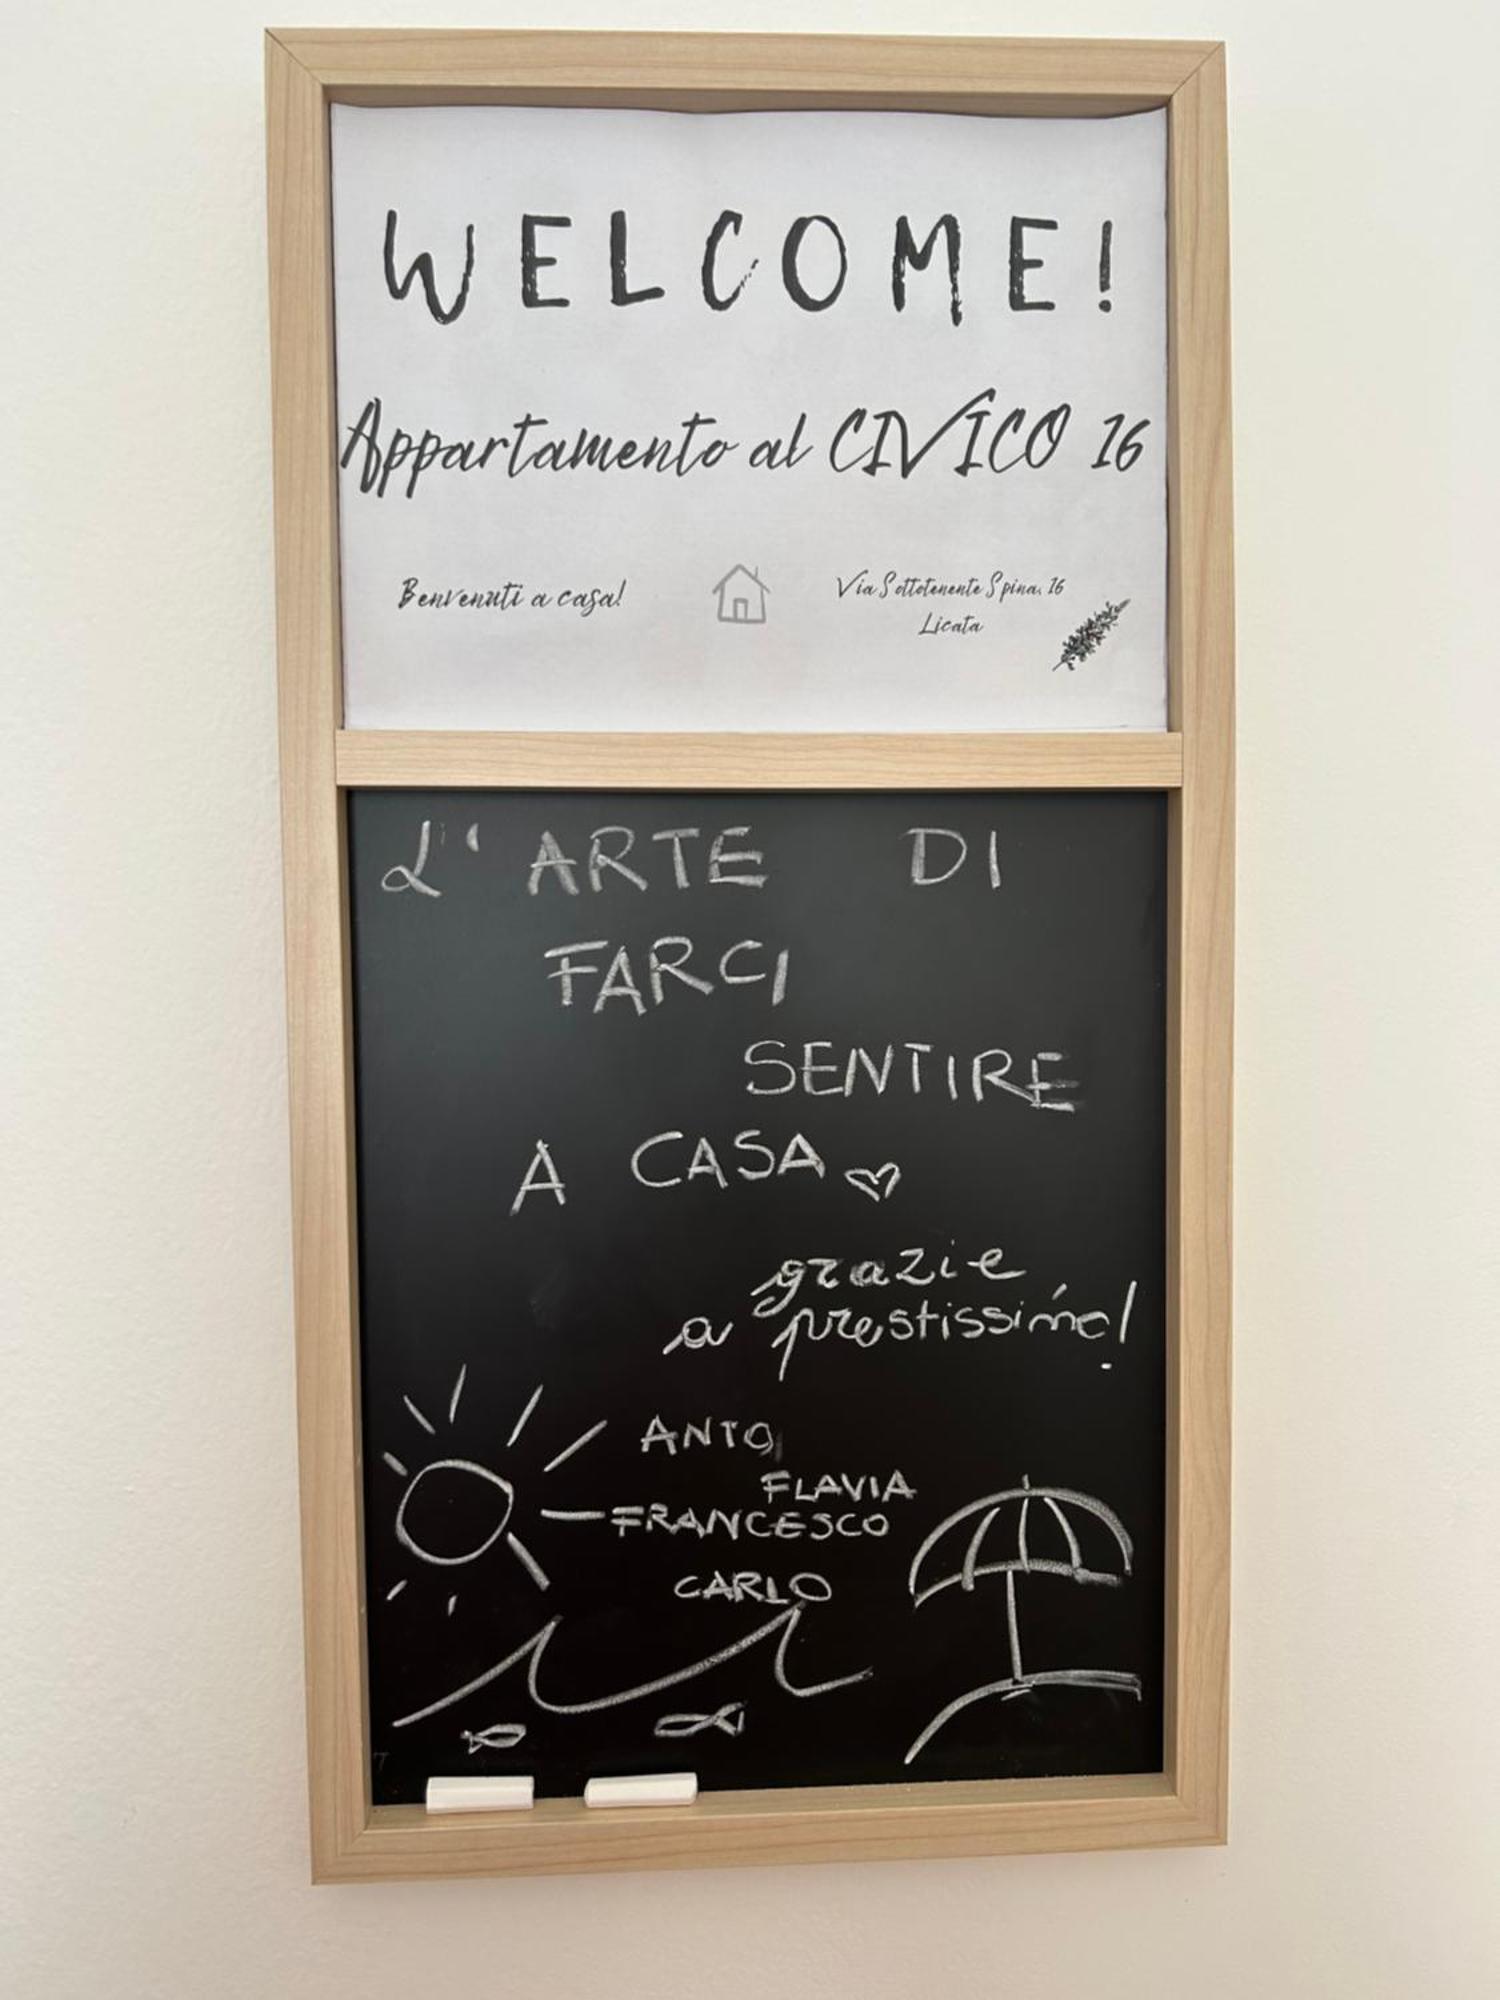 WELCOME!
Appartamento al CIVICO 16
Benvenuti a casa!
Via Sottotenente Spina, 16
Licata
L' ARTE DI
FARCI
SENTIRE
A CASA
grazie
a prestissimo!
ANTO
FLAVIA
FRANCESCO
CARLO